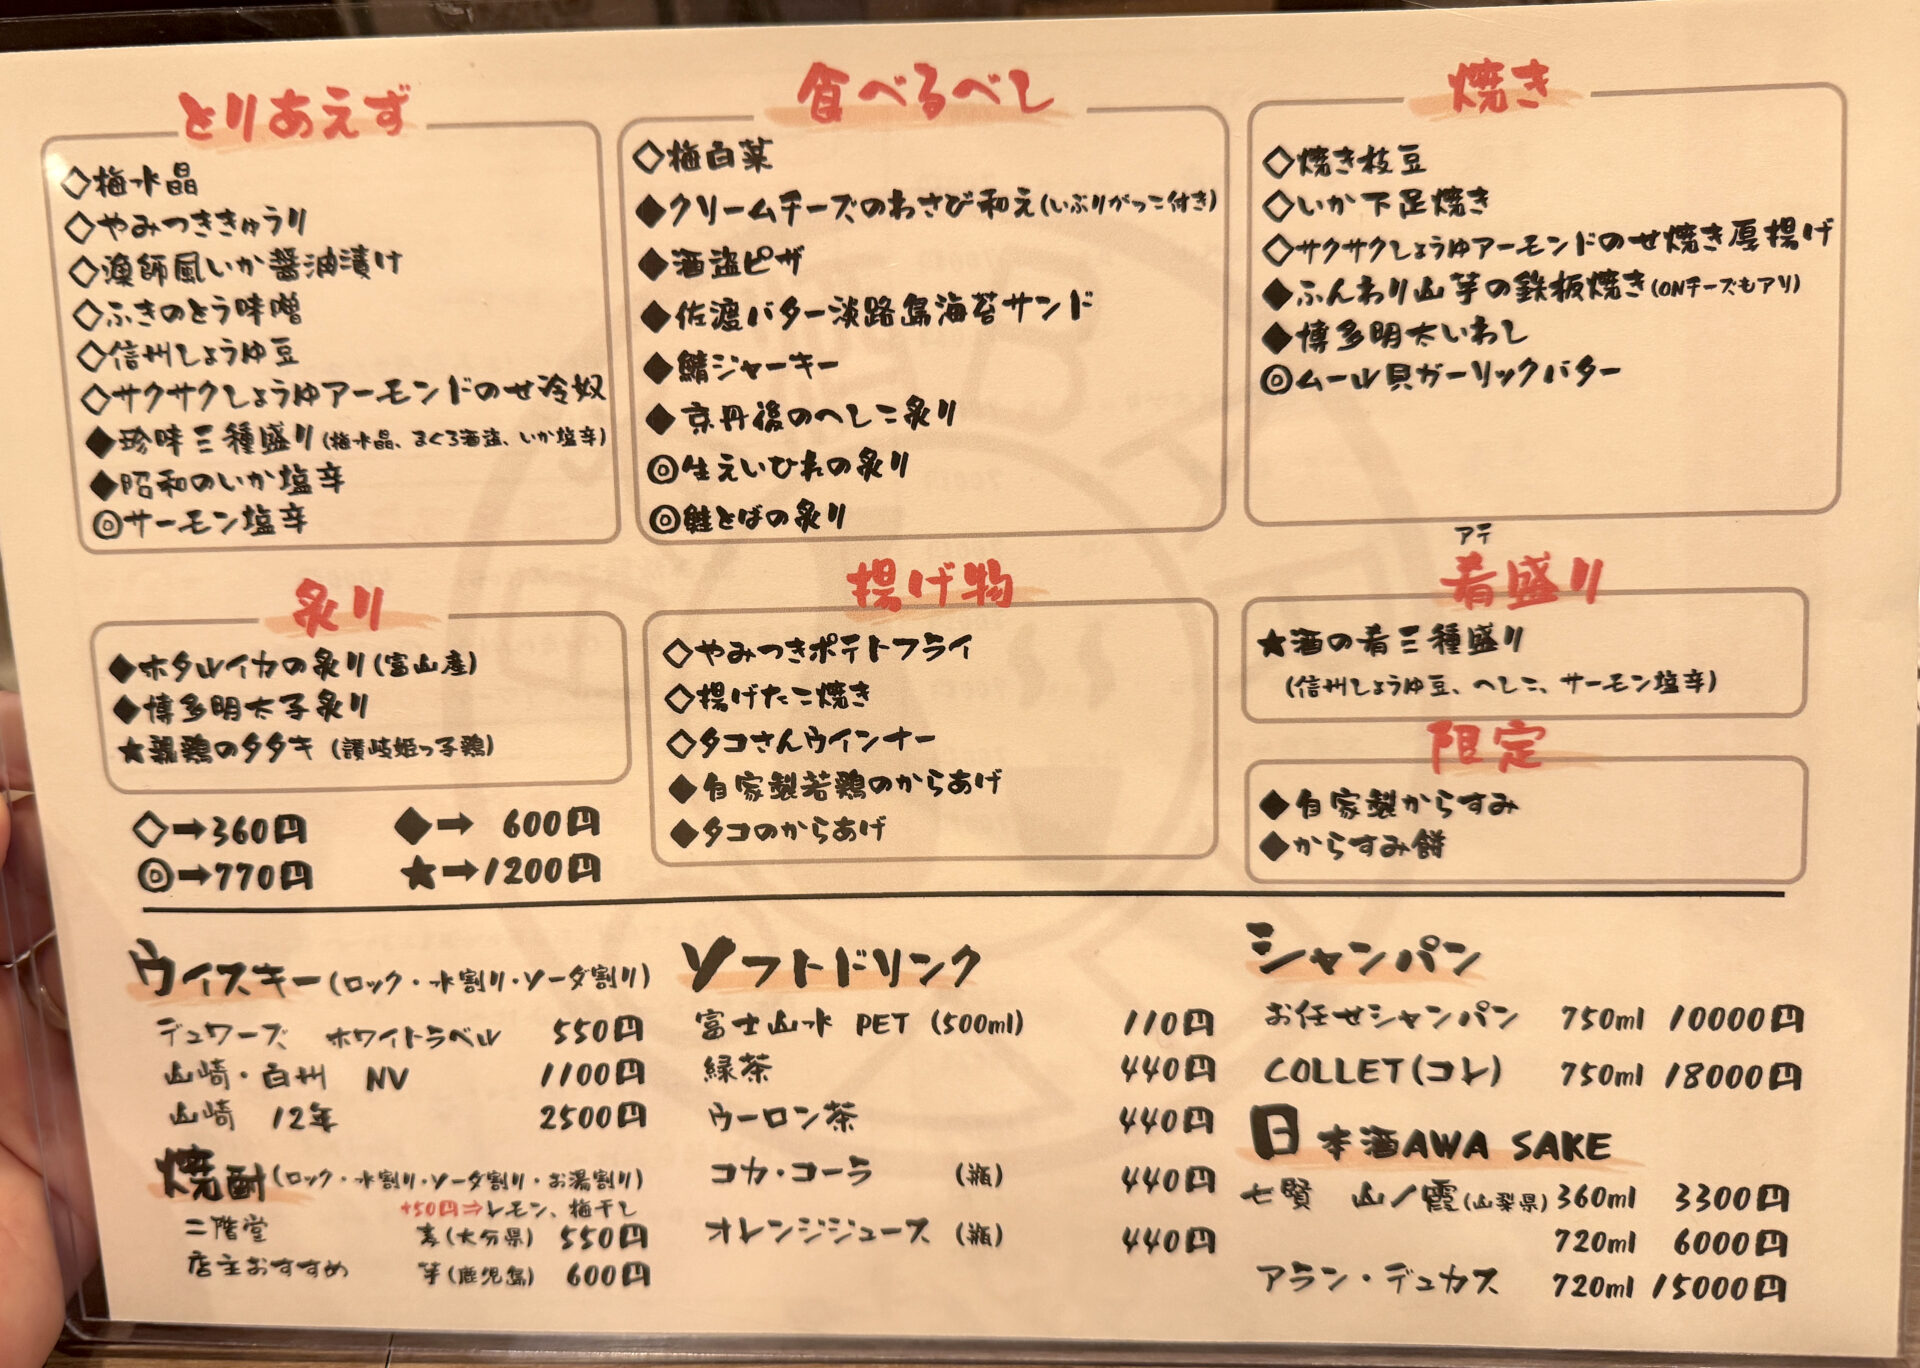 とりあえず
◇梅水晶
◇やみつききゅうり
◇漁師風いか醤油漬け
◇ふきのとう味噌
◇信州しょうゆ豆
◇サクサクしょうゆアーモンドのせ冷奴
◆珍味三種盛り(梅水晶、まぐろ酒盗、いか塩辛)
◆昭和のいか塩辛
◎サーモン塩辛
食べるべし
◇梅白菜
◆クリームチーズのわさび和え(いぶりがっこ付き)
◆酒盗ピザ
◆佐渡バター淡路島海苔サンド
◆鯖ジャーキー
◆京丹後のへしこ炙り
◎生えいひれの炙り
◎鮭とばの炙り
焼き
◇焼き枝豆
◇いか下足焼き
◇サクサクしょうゆアーモンドのせ焼き厚揚げ
◆ふんわり山芋の鉄板焼き(ONチーズもアリ)
◆博多明太いわし
◎ムール貝ガーリックバター
炙り
◆ホタルイカの炙り(富山産)
◆博多明太子炙り
★親鶏のタタキ(讃岐姫っ子鶏)
◇➡360円 ◆➡600円
◎➡770円 ★➡1200円
揚げ物
◇やみつきポテトフライ
◇揚げたこ焼き
◇タコさんウインナー
◆自家製若鶏のからあげ
◆タコのからあげ
アテ
肴盛り
★酒の肴三種盛り
(信州しょうゆ豆、へしこ、サーモン塩辛)
限定
◆自家製からすみ
◆からすみ餅
ウイスキー(ロック・水割り・ソーダ割り)
デュワーズ ホワイトラベル 550円
山崎・白州 NV 1100円
山崎 12年 2500円
焼酎(ロック・水割り・ソーダ割り・お湯割り)
+50円⇒レモン、梅干し
二階堂 麦(大分県) 550円
店主おすすめ 芋(鹿児島) 600円
ソフトドリンク
富士山水 PET (500ml) 110円
緑茶 440円
ウーロン茶 440円
コカ・コーラ (瓶) 440円
オレンジジュース (瓶) 440円
シャンパン
お任せシャンパン 750ml 10000円
COLLET(コレ) 750ml 18000円
日本酒AWA SAKE
七賢 山ノ霞(山梨県) 360ml 3300円
720ml 6000円
アラン・デュカス 720ml 15000円